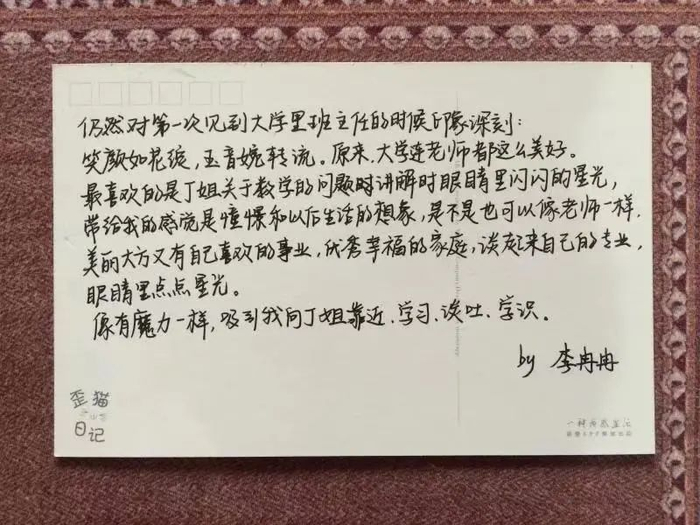 仍然对第一次见到大学里班主任的时候印象深刻：
笑颜如花绽，玉音婉转流。原来，大学连老师都这么美好。
最喜欢的是丁姐关于教学的问题时讲解时眼睛里闪闪的星光，
带给我的感觉是憧憬和以后生活的想象，是不是也可以像老师一样，
美丽大方又有自己喜欢的事业，优秀幸福的家庭，谈起来自己的专业，
眼睛里点点星光。
像有魔力一样，吸引我向丁姐靠近、学习、谈吐、学识。
by 李冉冉
歪猫
日记